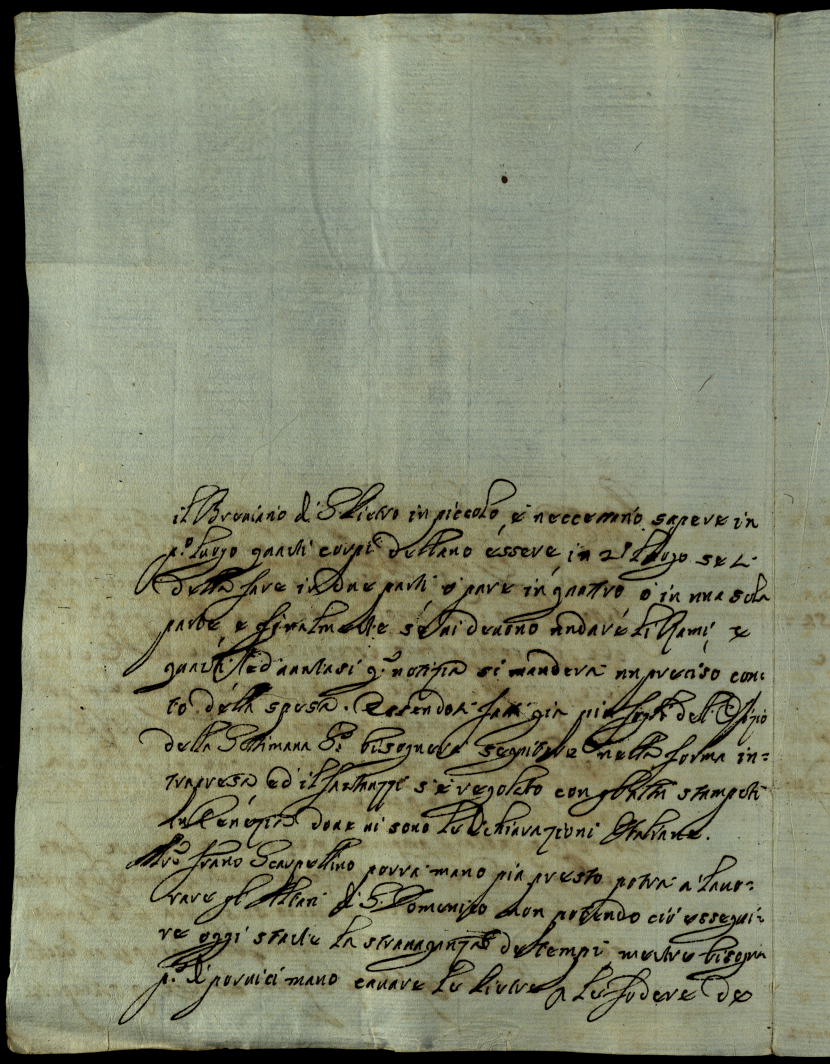 il Breviario di S. Pietro in piccolo, è neccessario sapere in
p.º luogo quanti corpi debbano éssere, in 2.º luogo se L'
debba fare in due parti ò pure in quattro ò in una sola
parte, e finalmente se vi devono andare li Rami, e
quanti, ed avutasi q.ª notizia si manderà un preciso con:
to della spesa. Essendosi fatti già più fogli del Ofizio
della Settimana S.ª bisognerà seguitare nella forma in:
trapresa ed il s'è regolato con gl'altri stampati
in Venézia dove vi sono le dichiarazioni Italiane.
Mrõ Scarpellino porrà mano più presto potrà a lavo:
rare gl'Altari di S. Domenico non potendo ciò essegui:
re oggi stante la stravaganza de tempi, mentre bisogna
p.ª di porvici mano cavare le Pietre, e le fodere de